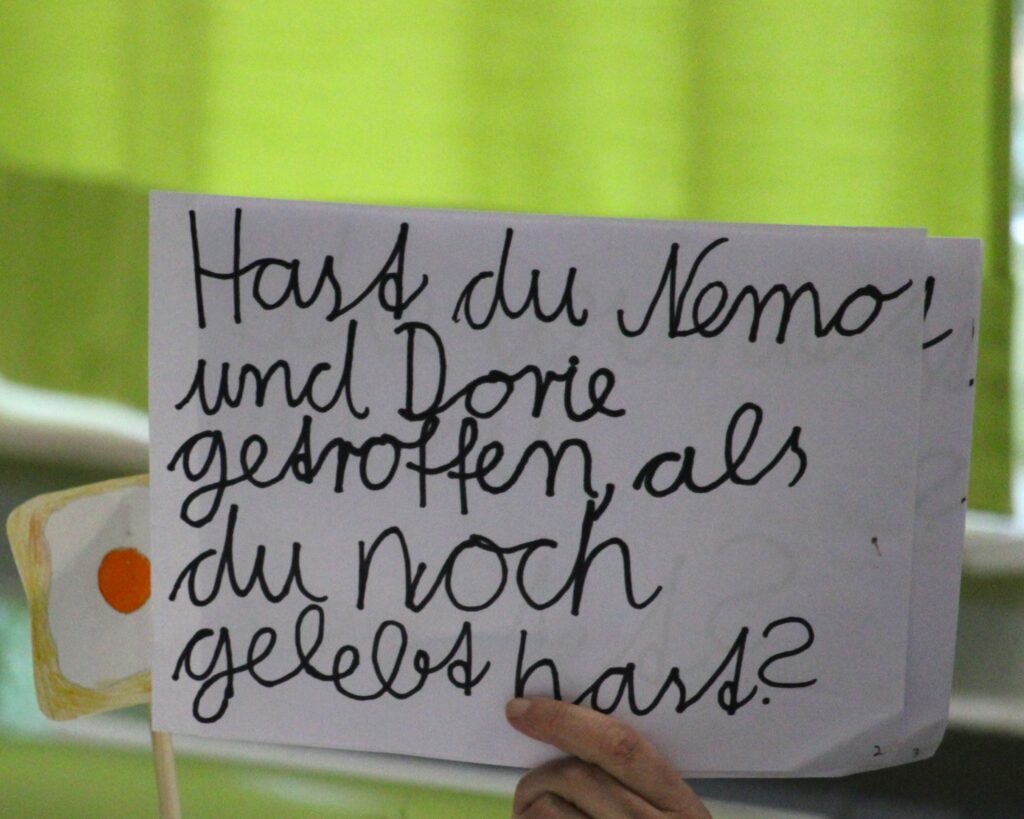 Hast du Nemo
und Dorie
getroffen, als
du noch
gelebt hast?
2 3